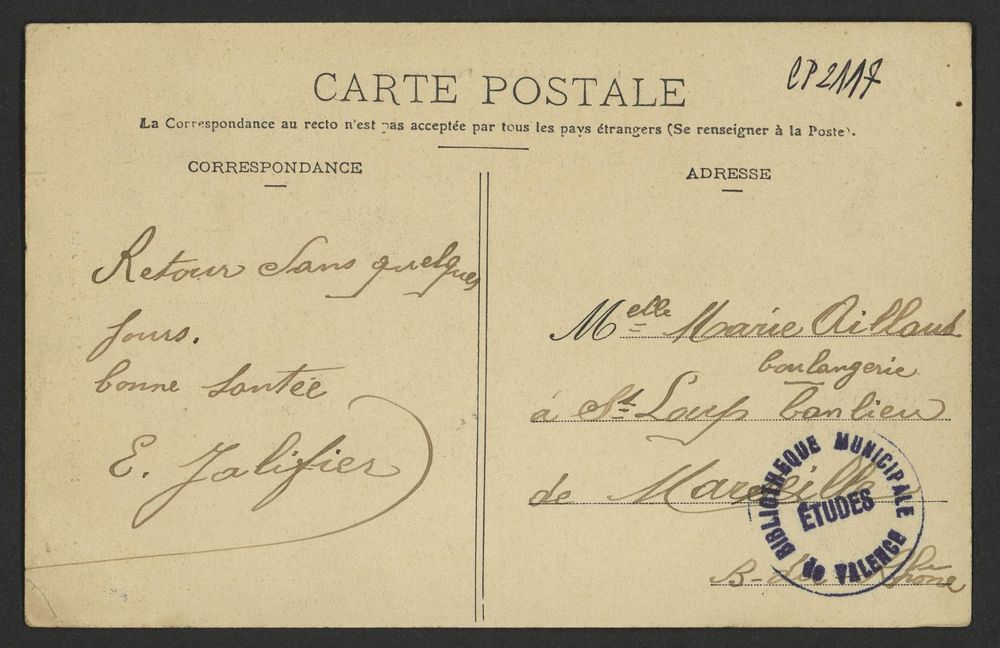 CP2117
CARTE POSTALE
La Correspondance au recto n'est pas acceptée par tous les pays étrangers (Se renseigner à la Poste).
CORRESPONDANCE
Retour dans quelques
jours.
bonne santée
E. Jalifier
ADRESSE
Melle Marie Aillaud
boulangerie
à St Loup banlieu
de Marseille
B-du Rhône
BIBLIOTHEQUE MUNICIPALE
ÉTUDES
de VALENCE